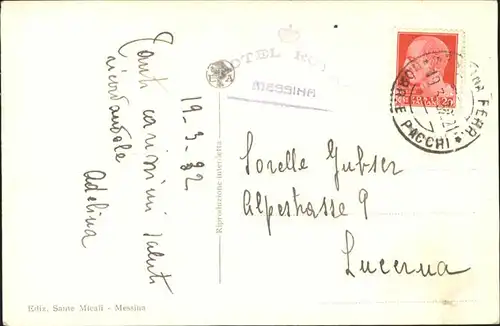 19-3-32
Tanti carissimi saluti
ricordandole
Adelina
HOTEL ROYAL
MESSINA
Riproduzione interdetta
PACCHI
Sorelle Gubser
Alpestrasse 9
Lucerna
Ediz. Sante Micali - Messina